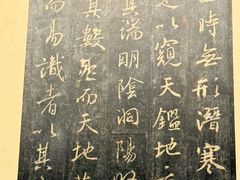 時無形潛寒
是以窺天鑑地
其端明陰洞陽
其數然而天地苞
而易識者以其